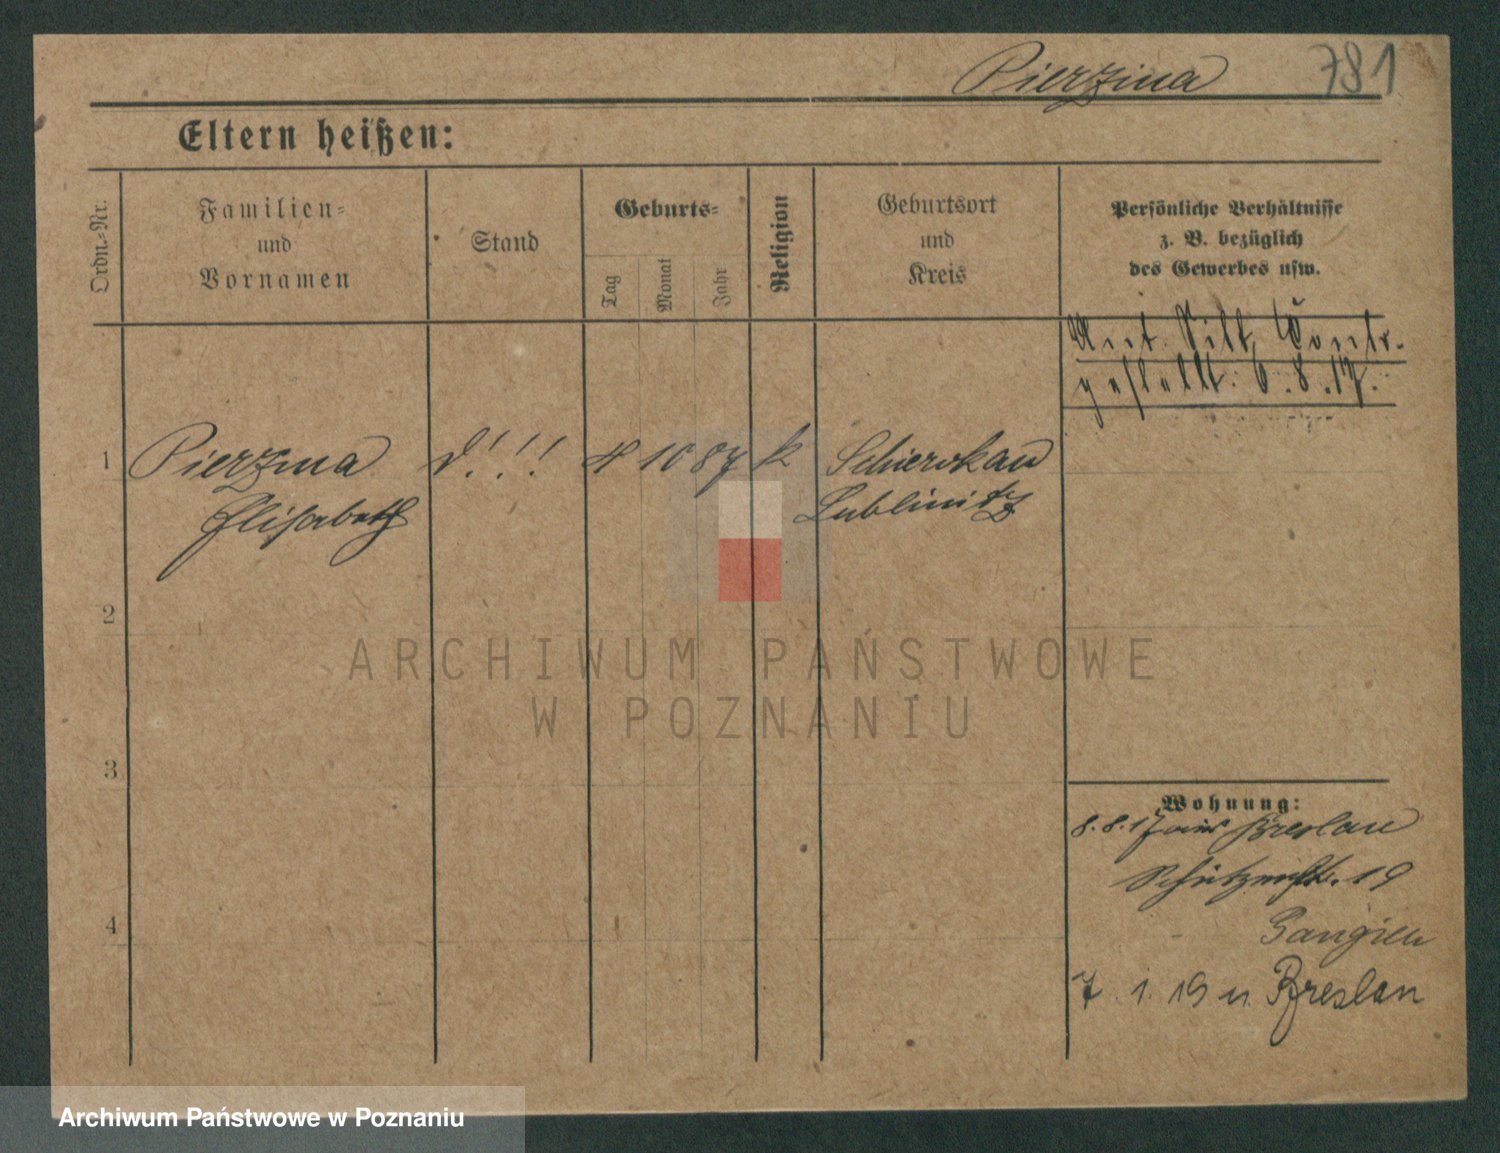 Pierzina 781
Eltern heißen:
Ordn.-Nr.
Familien-
und
Vornamen
Stand
Geburts-
Tag
Monat
Jahr
Religion
Geburtsort
und
Kreis
Persönliche Verhältnisse
z. B. bezüglich
des Gewerbes usw.
gestellt. 6.8.17.
1 Pierzina 10 87 k Schierokau
Elisabeth Lublinitz
2
3
4
Wohnung:
8.8.17 Breslau
Schützenstr. 19
7. 1. 19 n. Breslau
ARCHIWUM PAŃSTWOWE
W POZNANIU
Archiwum Państwowe w Poznaniu